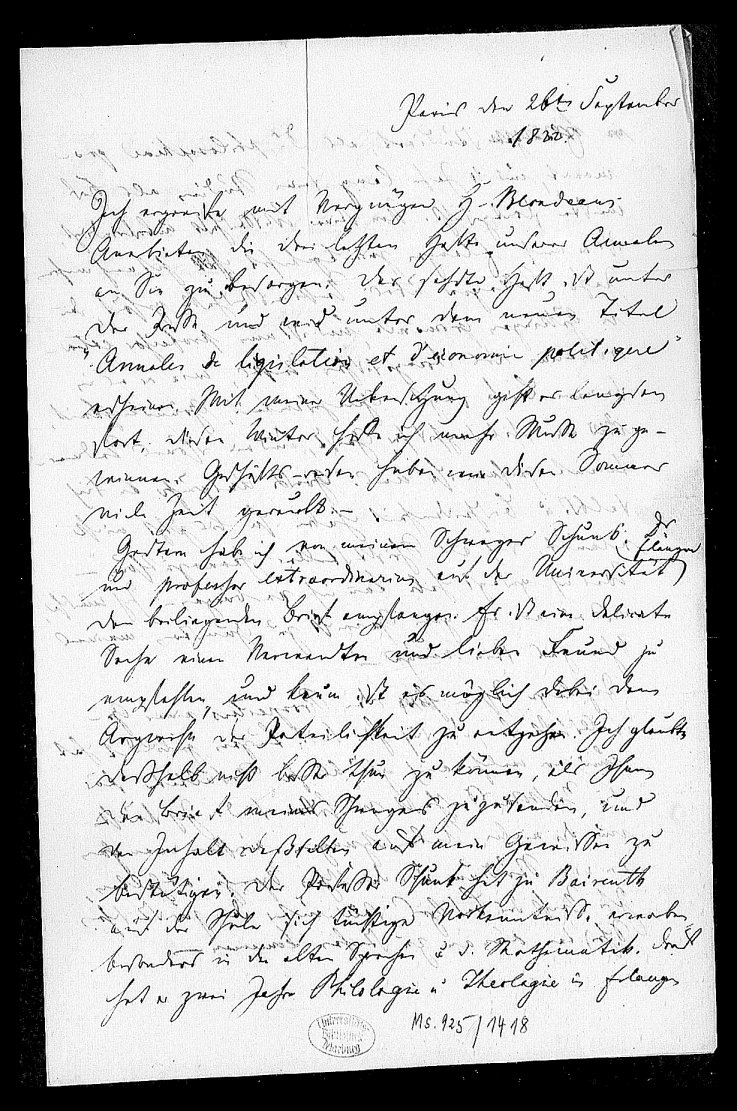 Paris den 26ten September
1822.
Ich ergreife mit Vergnügen H. Blondeaus
Anerbieten die drei letzten Hefte unserer Annalen
an Sie zu besorgen. Das sechste Heft ist unter
der Presse und wird unter dem neuen Titel
"Annales de legislation et d'economie politique"
erscheinen. Mit meiner Uebersetzung geht es langsam
fort, diesen Winter hoffe ich mehr Muße zu ge-
winnen. Geschäfts-reisen haben mir diesen Sommer
viele Zeit geraubt. —
Gestern hab ich von meinem Schwager Schunk, Dr
und professor extraordinarius auf der Universität Erlangen
den beiliegenden Brief empfangen. Es ist eine delicate
Sache einen Verwandten und lieben Freund zu
empfehlen, und kaum ist es möglich dabei dem
Argwohn der Parteilichkeit zu entgehen. Ich glaubte
deßhalb nichts besser thun zu können, als Ihnen
den Brief meines Schwagers zuzusenden, und
den Inhalt desselben auf mein Gewissen zu
bestätigen. Der Professor Schunk hat zu Baireuth
auf der Schule sich tüchtige Vorkenntnisse erworben
besonders in den alten Sprachen u. d. Mathematik. Dann
hat er zwei Jahre Philologie u Theologie in Erlangen
Ms. 925/1418
Universitäts-
Bibliothek
Marburg